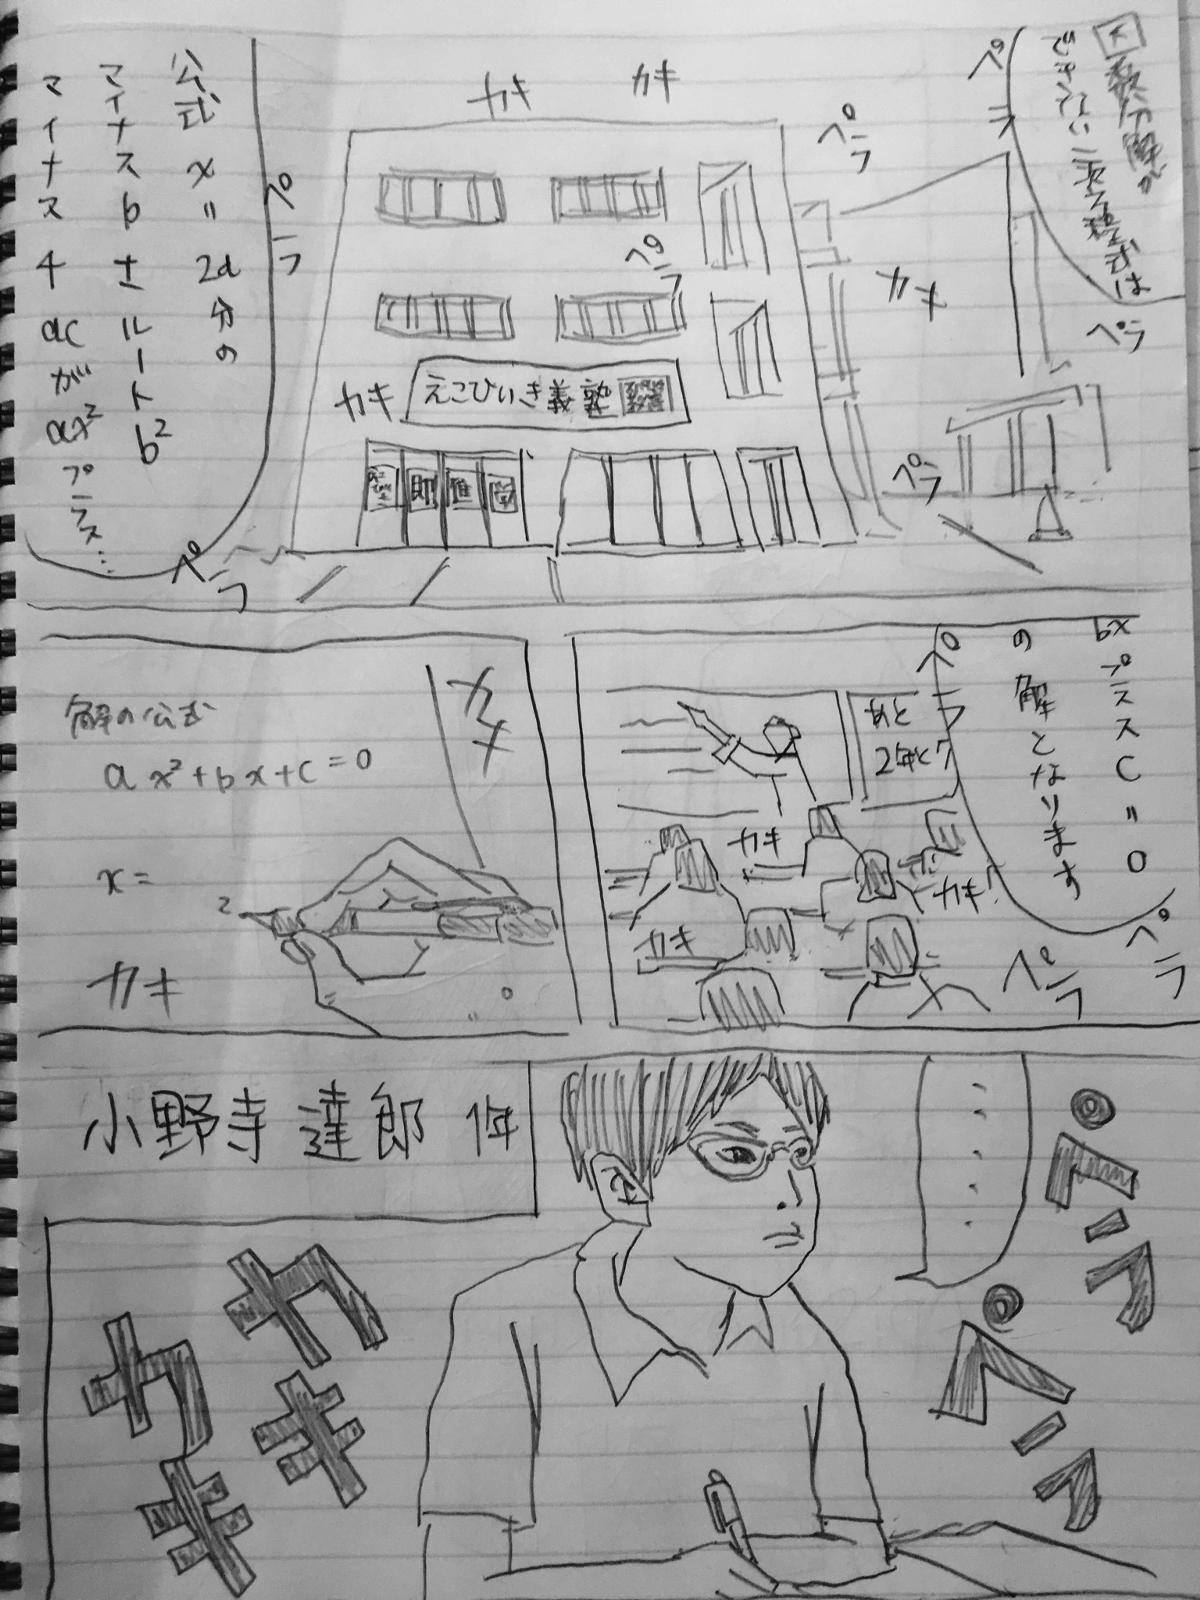 因数分解が
できてない二次方程式は
ペラ
ペラ
カキ
カキ
ペラ
カキ
ペラ
ペラ
ペラ
カキ
えこひいき義塾
即
進
公式x=2a分の
マイナスb±ルートb²
マイナス4acがax²プラス…
ペラ
ペラ
bxプラスC=0
の解となります
ペラ
ペラ
ペラ
あと
2年と7
カキ
カキ
カキ
カキ
解の公式
ax²+bx+c=0
x=
2
カキ
……
ペラ
ペラ
小野寺達郎 作
カキ
カキ